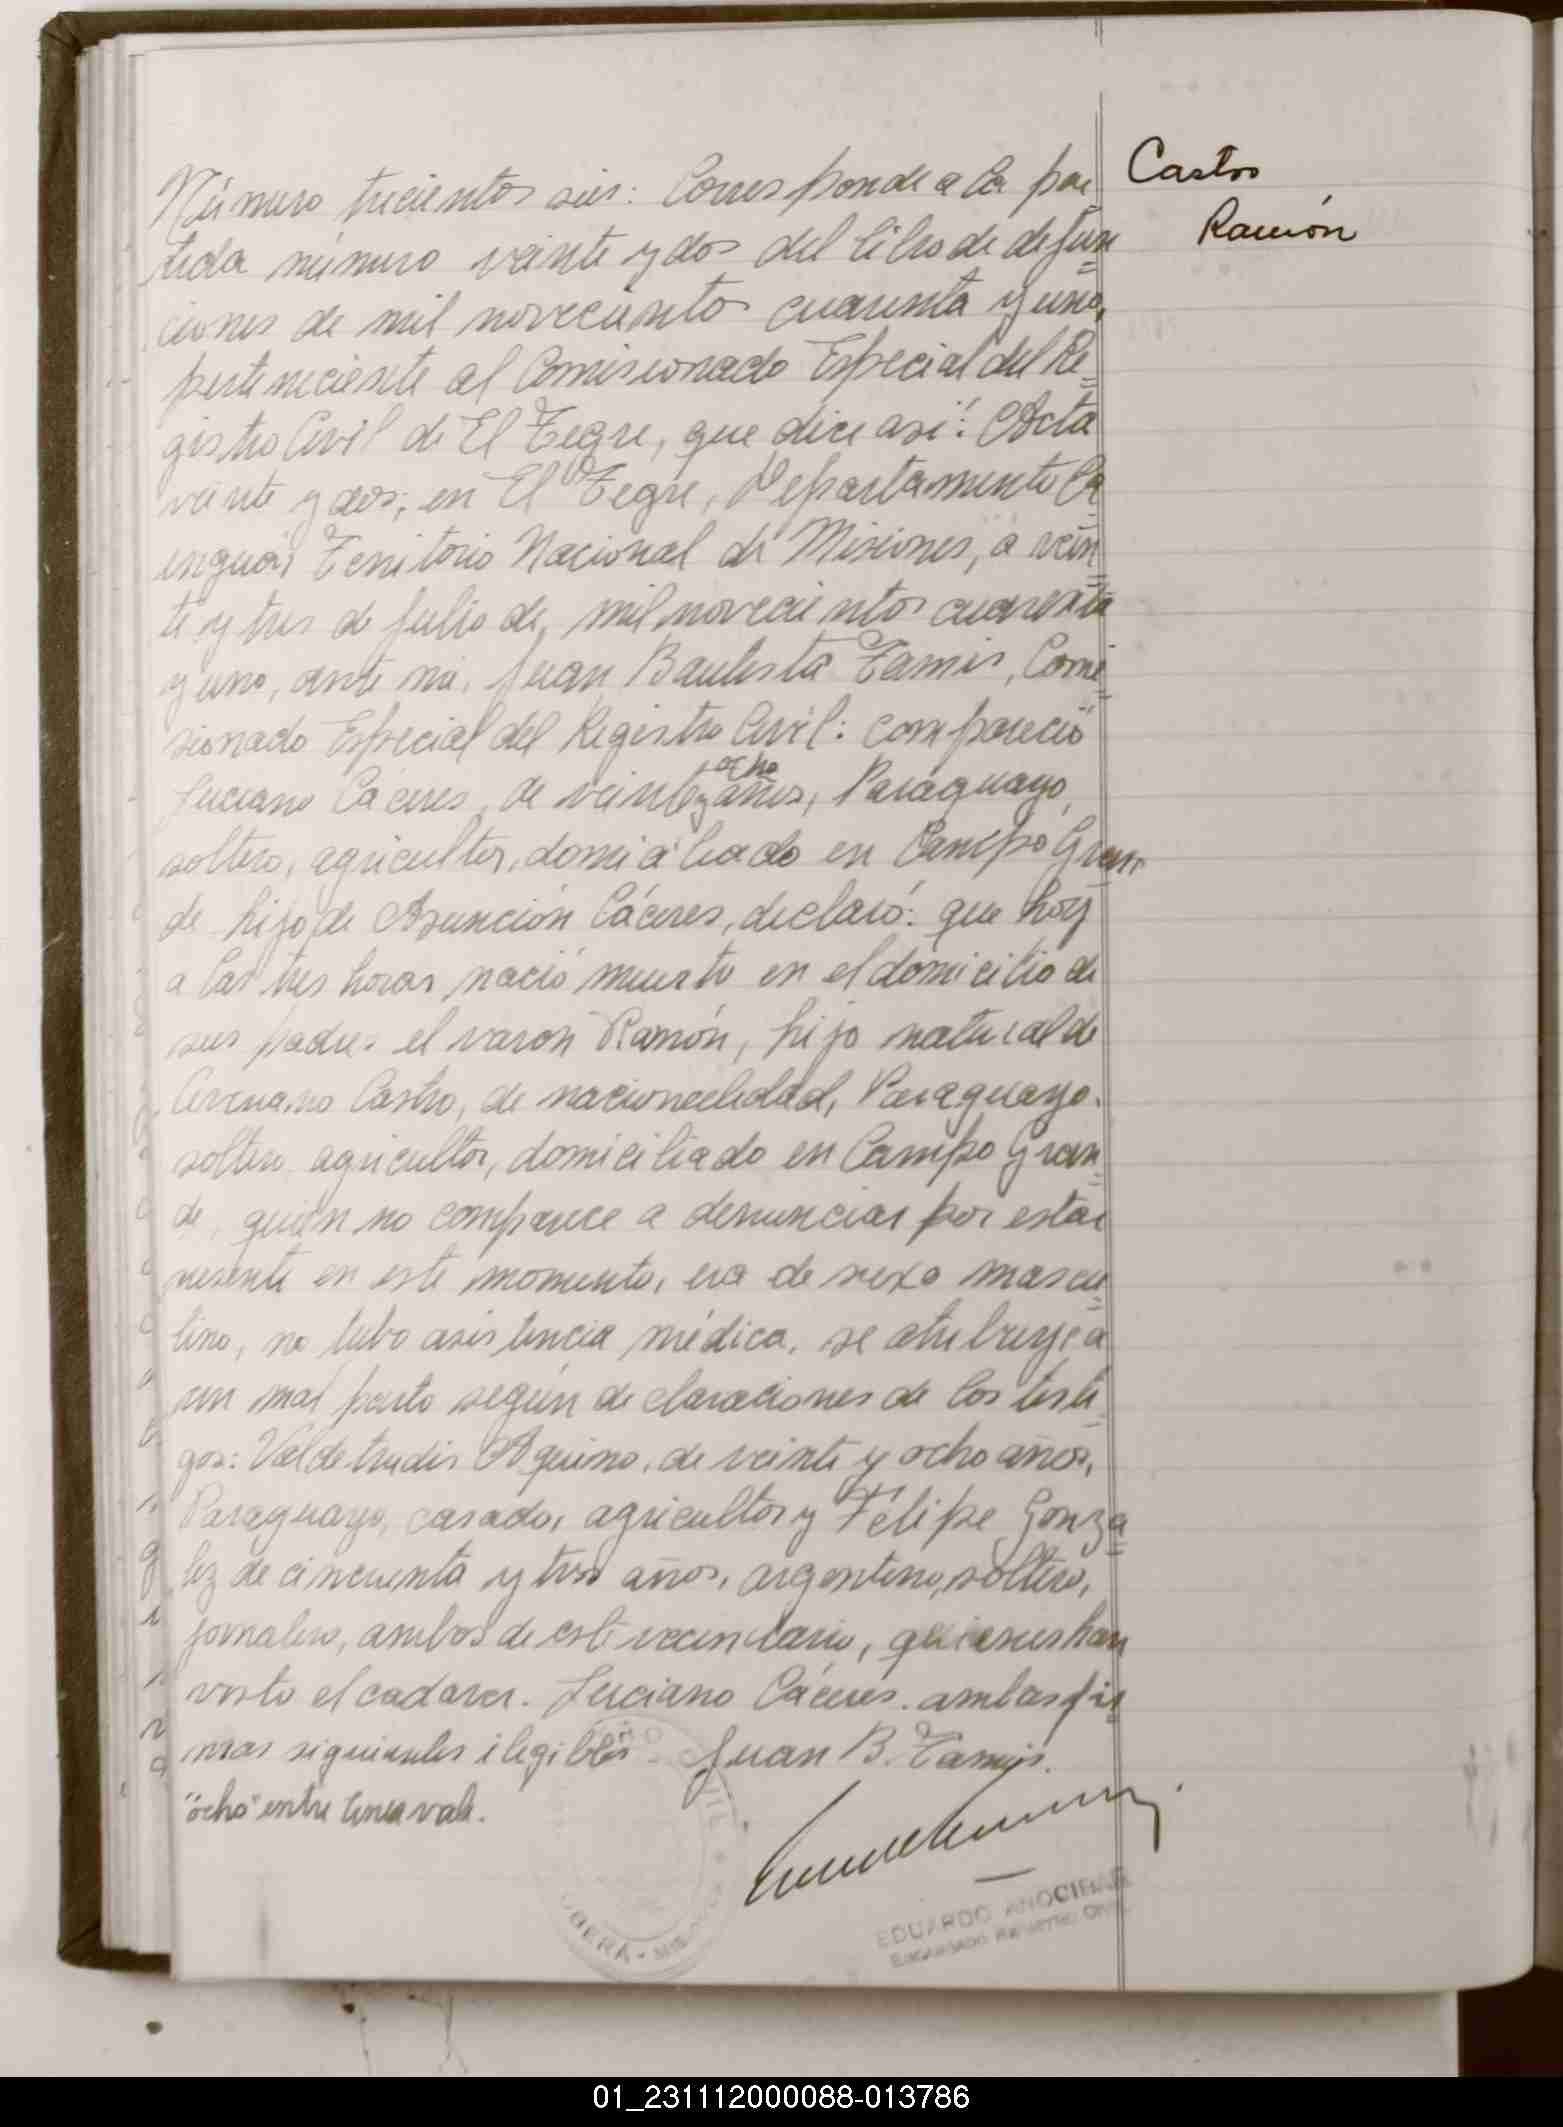 Número trecientos seis: Corresponde a la par=
tida número veinte y dos del libro de defun=
ciones de mil novecientos cuarenta y uno,
perteneciente al Comisionado Especial del Re=
gistro Civil de El Tigre, que dice asi: Acta
veinte y dos; en El Tigre, Departamento Ca
inguás Territorio Nacional de Misiones, a vein=
te y tres de Julio de mil novecientos cuarenta
y uno, ante mi, Juan Bautista Tamis, Comi=
sionado Especial del Registro Civil: compareció
ocho
Luciano Cáceres, de veinte y años, Paraguayo,
soltero, agricultor, domiciliado en Campo Gran=
de hijo de Asunción Cáceres, declaró: que hoy
a las tres horas nació muerto en el domicilio de
sus padres el varon Ramón, hijo natural de
Castro, de nacionalidad, Paraguayo.
soltero agricultor, domiciliado en Campo Gran=
de, quien no comparece a denunciar por estar
en este momento, era de sexo mascu=
lino, no tubo asistencia médica, se atribuye a
un mal parto según declaraciones de los testi=
gos: Valdetrudis Aquino, de veinte y ocho años,
Paraguayo, casado, agricultor y Félipe Gonza=
lez de cincuenta y tres años, argentino, soltero,
jornalero, ambos de este vecindario, quienes han
visto el cadaver. Luciano Cáceres. ambas fir=
mas siguientes ilegibles. Juan B. Tamis.
"ocho" entre linea vale.
Castro
Ramón
OBERÁ - MISIONES
EDUARDO ANOCIBAR
ENCARGADO REGISTRO CIVIL
01_231112000088-013786